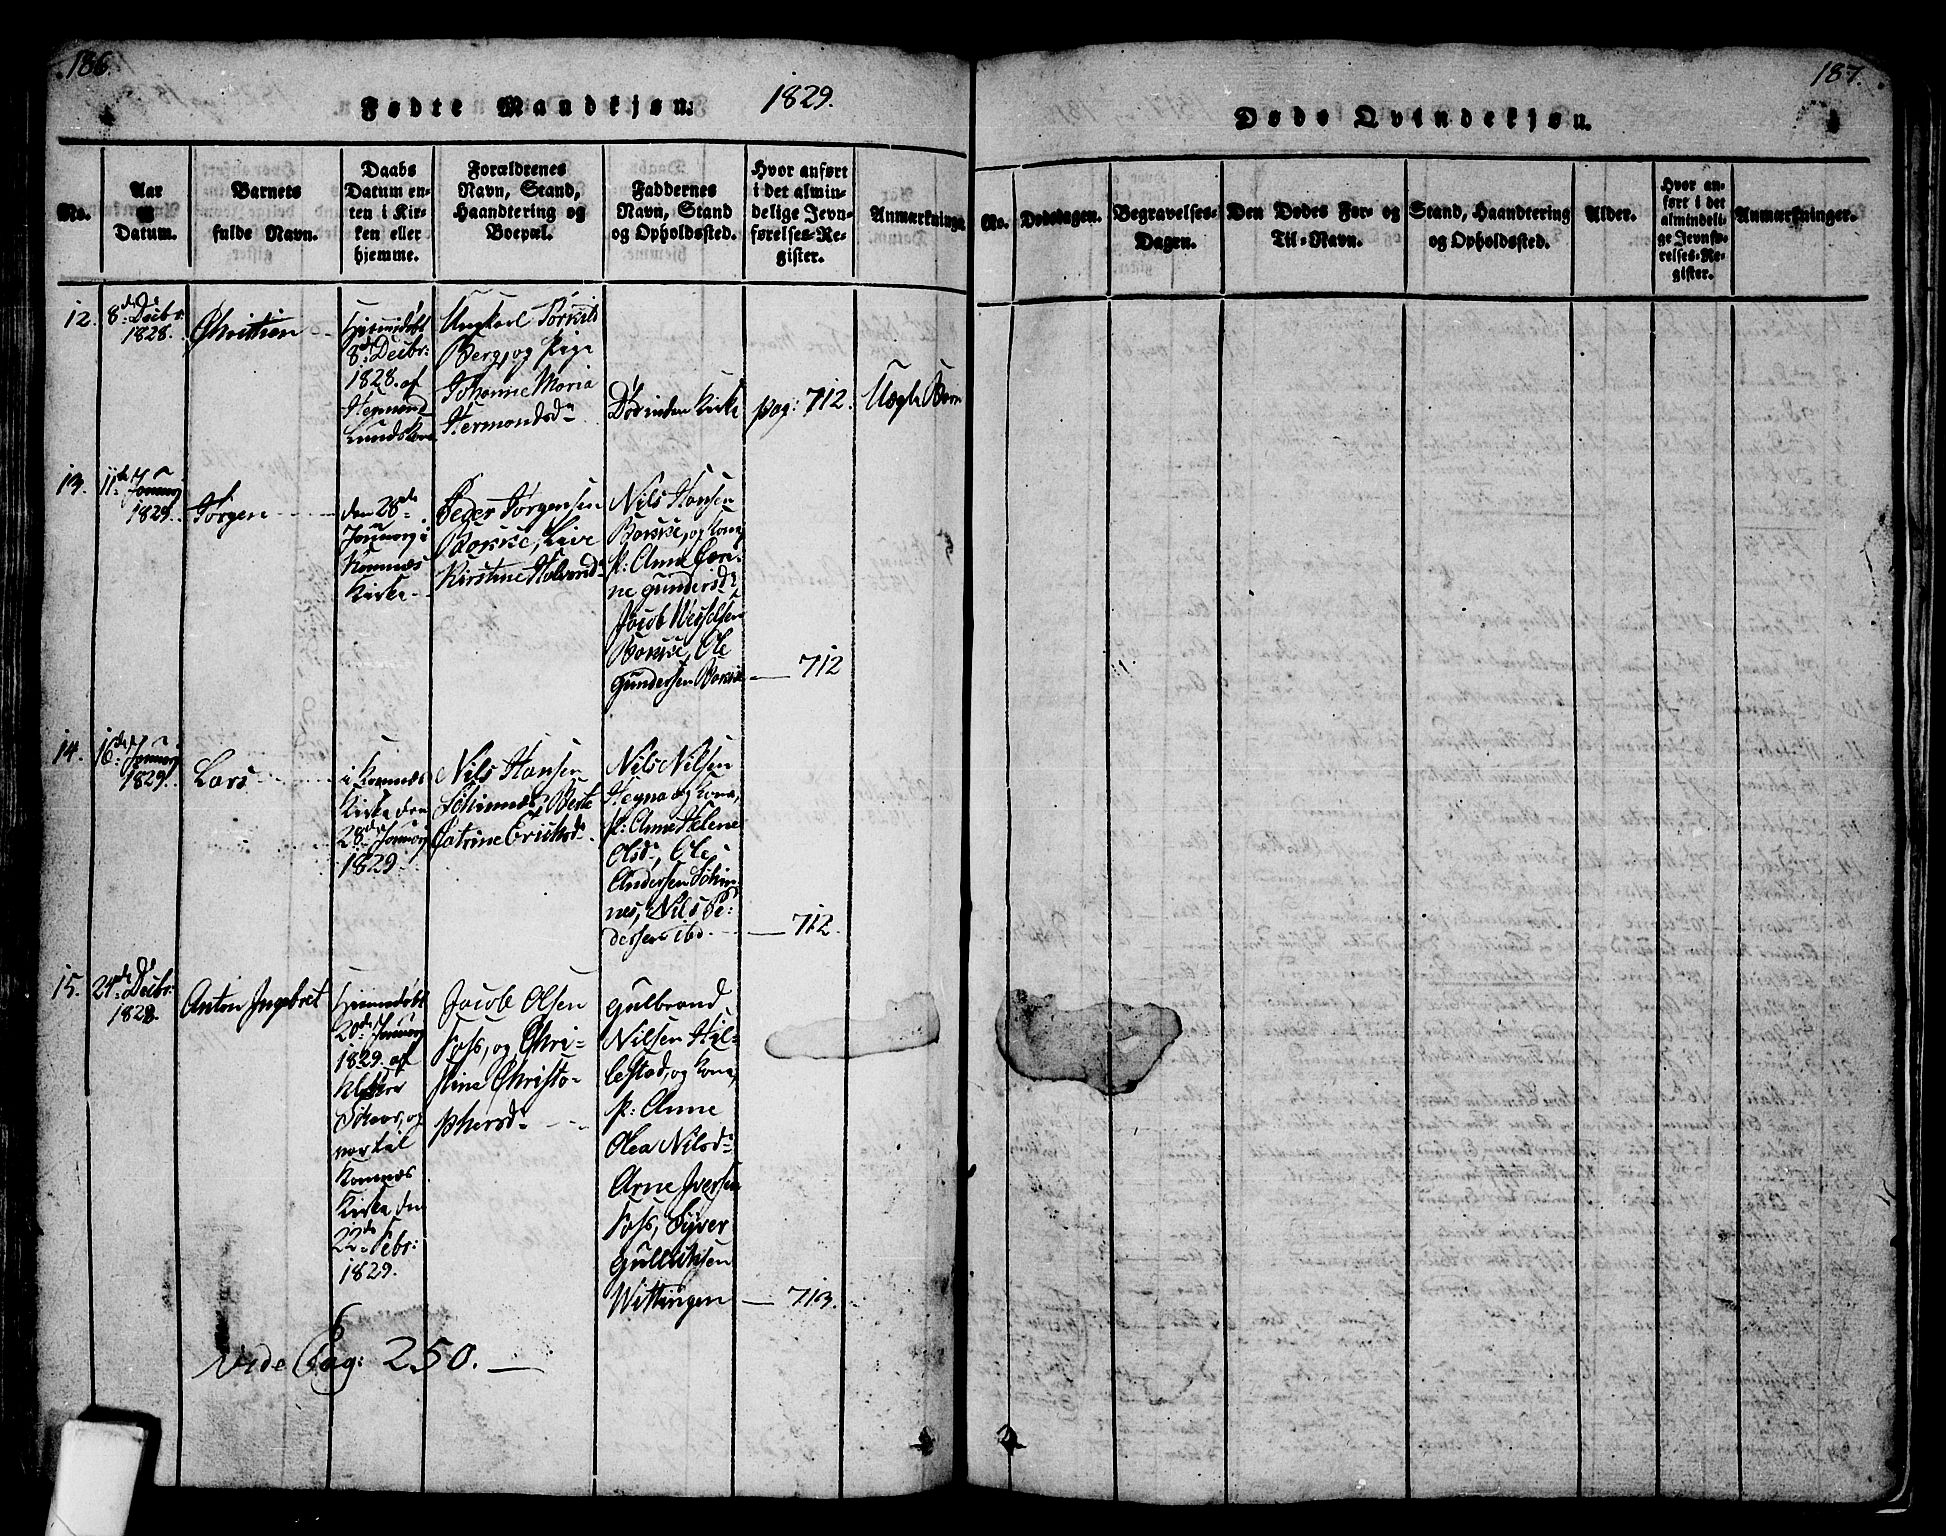 186.
Fødte Mandkjøn: 1829.
No.
Aar og Datum.
Barnets fulde Navn.
Daabs Datum enten i Kirken eller hjemme.
Forældrenes Navn, Stand, Haandtering og Boepæl.
Faddernes Navn, Stand og Opholdssted.
Hvor anført i det almindelige Jevnførelses-Register.
Anmærkninger
12.
8de Decbr:
1828.
Christian
Hjemmedøbt
8de Decbr:
1828. af
Lundskov
Ungkarl
Berg, og Pige
Johanne Maria
Hermondsdr
Død inden Kirke
pag: 712.
Uægte Barn
13.
11te Januarj
1829.
Jørgen
den 28de
Januarj i
Komnæs
Kirke
Peder Jørgensen
Bakke, Live
Kirstine
Nils Hansen
Bakke, og Kona,
N: Anne
gundersdr
Jacob Wesselsen
Bakke, Ole
Gundersen Bakke
712
14.
16de Januarj
1829.
Lars
i Komnæs
Kirke den
28de Januarj
1829.
Nils Hansen
Berte
Catrine Ericksdr
Nils Nilsen
og Kona,
N: Anne Helene
Olsdr, Ole
Andersen
nes, Nils Pe:
dersen ibd.
712.
15.
24de Decbr:
1828.
Anton Ingebret
Hjemmedøbt
20de Januarj
1829. af
Klokker
og
Komnæs
Kirke den
22de Febr:
1829.
Jacob Olsen
Foss, og Chri-
stine Christo-
phersdr
Gulbrand
Nilsen Hil-
lestad, og Kona,
N: Anne
Olea Nilsdr
Arne Iversen
Foss, Syver
Gulliksen
Wittingen
713.
Vide Pag: 250.
187.
Døde Qvindekjøn.
No.
Dødsdagen.
Begravelses-Dagen.
Den Dødes For- og Til-Navn.
Stand, Haandtering og Opholdssted.
Alder.
Hvor anført i det almindelige Jevnførelses-Register.
Anmærkninger.